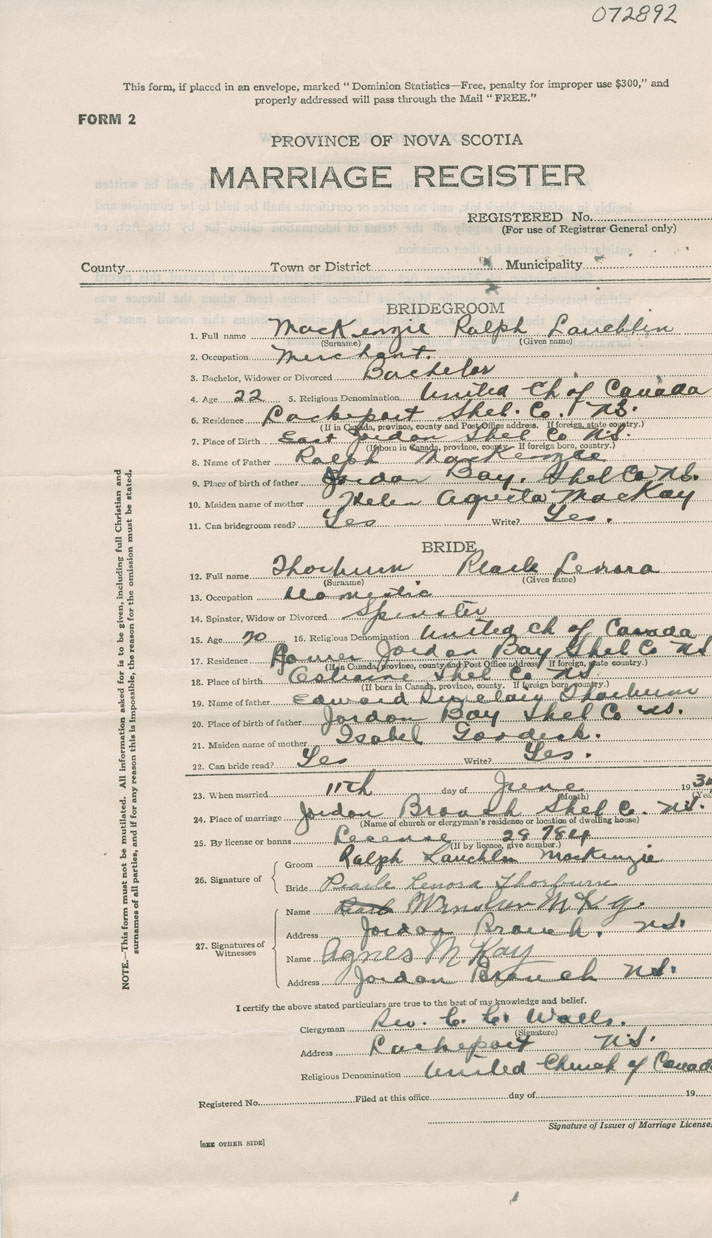 072892
This form, if placed in an envelope, marked "Dominion Statistics—Free, penalty for improper use $300," and
properly addressed will pass through the Mail "FREE."
FORM 2
PROVINCE OF NOVA SCOTIA
MARRIAGE REGISTER
REGISTERED No.
(For use of Registrar General only)
County Town or District Municipality
BRIDEGROOM
1. Full name MacKenzie Ralph Lauchlin
(Surname) (Given name)
2. Occupation Merchant.
3. Bachelor, Widower or Divorced Bachelor
4. Age 22 5. Religious Denomination United Ch of Canada
6. Residence Lockeport Shel. Co. NS.
(If in Canada, province, county and Post Office address. If foreign, state country.)
7. Place of Birth East Jordan Shel Co N.S.
(If born in Canada, province, county. If foreign born, country.)
8. Name of Father Ralph MacKenzie
9. Place of birth of father Jordan Bay. Shel Co NS.
10. Maiden name of mother Helen MacKay
11. Can bridegroom read? Yes Write? Yes.
BRIDE
12. Full name Thorburn Pearle Lenora
(Surname) (Given name)
13. Occupation Domestic
14. Spinster, Widow or Divorced Spinster
15. Age 20 16. Religious Denomination United Ch of Canada
17. Residence Lower Jordan Bay Shel Co NS
(If in Canada, province, county and Post Office address. If foreign, state country.)
18. Place of birth Shel Co NS
(If born in Canada, province, county. If foreign born, country.)
19. Name of father Edward Thorburn
20. Place of birth of father Jordan Bay Shel Co NS.
21. Maiden name of mother Isabel
22. Can bride read? Yes Write? Yes.
23. When married 11th day of June 193
(Month) (Year
24. Place of marriage Jordan Branch Shel Co. NS.
(Name of church or clergyman's residence or location of dwelling house)
25. By license or banns License 28784
(If by licence, give number.)
26. Signature of
Groom Ralph Lauchlin MacKenzie
Bride Pearle Lenora Thorburn
27. Signatures of Witnesses
Name Winslow McKay
Address Jordan Branch. NS.
Name Agnes McKay
Address Jordan Branch NS.
I certify the above stated particulars are true to the best of my knowledge and belief.
Clergyman Rev. C. C. Walls.
(Signature)
Address Lockeport NS.
Religious Denomination United Church of Canada
Registered No. Filed at this office day of 19
Signature of Issuer of Marriage License.
[SEE OTHER SIDE]
NOTE.—This form must not be mutilated. All information asked for is to be given, including full Christian and
surnames of all parties, and if for any reason this is impossible, the reason for the omission must be stated.